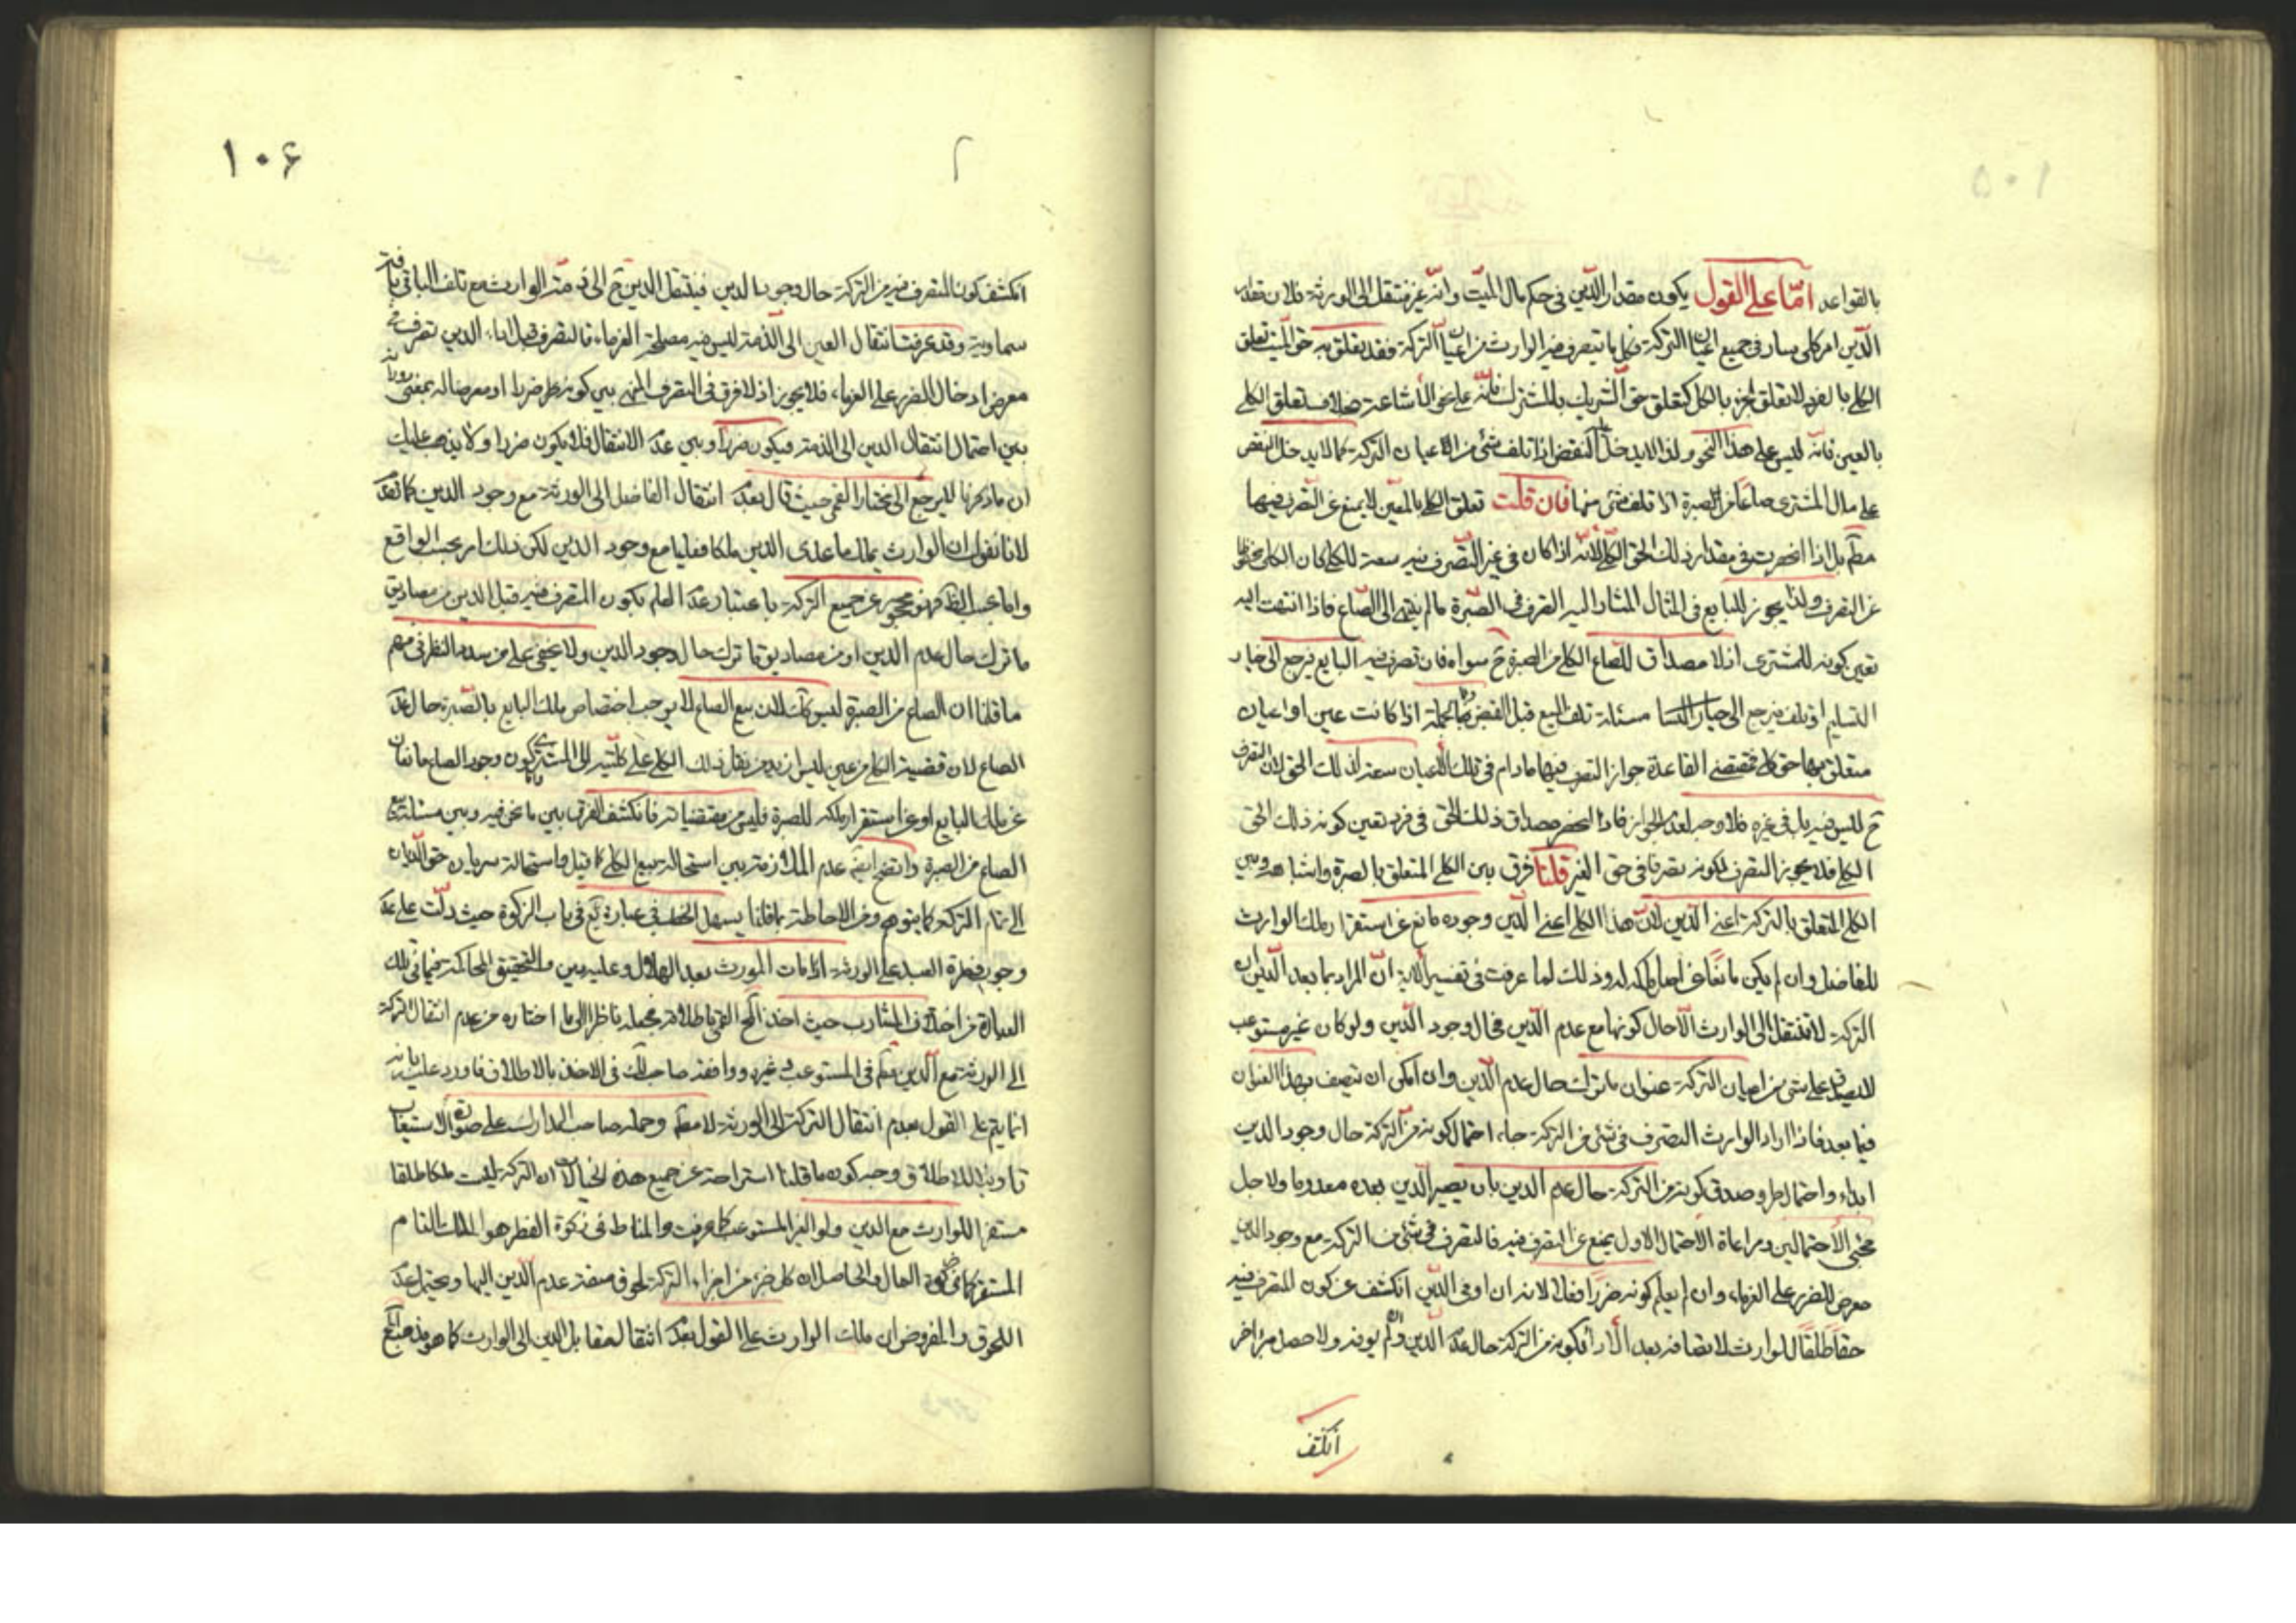 ١٠٥
بالقواعد امّا على القول يكون مقدار الدّين فى حكم مال الميّت وانّه غير منتقل الى الورثة فلان مقدار
الدّين امر كلى سار فى جميع اعيان التركة فكل ما يتصرف فيه الوارث من اعيان التركة فقد يعلق به حق الميت تعلق
الكلى بالفرد لا تعلق الجزء بالكل كتعلق حق الشريك بالمشترك فانّه على نحو الاشاعة بخلاف تعلق الكلى
بالعين فانّه ليس على هذا النحو ولذا لا يدخل النقص اذا تلف شئ من الاعيان التركة كما لا يدخل النقص
على مال المشترى صاعا من الصبرة اذا تلف شئ منها فان قلت تعلق الكلى بالمعين لا يمنع عن التصرف فيها
مطم بل اذا انحصرت فى مقدار ذلك الحق الكلى لانّه اذا كان فى غير التصرف فيه سعة للكلى كان الكلى
عن التصرف ولذا يجوز للبايع فى المثال المشار اليه التصرف فى الصّبرة مالم ينته الى الصّاع فاذا انتهت اليه
تعين كونه للمشترى اذ لا مصداق للصّاع الكلى من الصبرة ح سواه فان تصرف فيه البايع يرجع الى خيار
التسليم او تلف يرجع الى مسئلة تلف المبيع قبل القبض وبالجملة اذا كانت عين او اعيان
متعلق بها حق كلى فمقتضى القاعدة جواز التصرف فيها مادام فى تلك الاعيان سعة لذلك الحق لان التصرف
ح ليس فيه بل فى غيره فلا وجه لعدم الجواز فاذا انحصر مصداق ذلك الحق فى فرد تعين كونه ذلك الحق
الكلى فلا يجوز التصرف لكونه تصرفا فى حق الغير قلنا فرق بين الكلى المتعلق بالصبرة واشباهه وبين
الكلى المتعلق بالتركة اعنى الدّين لانّ هذا الكلى اعنى الدّين وجوده مانع عن استقرار ملك الوارث
للفاضل وان لم يكن مانعا عن اصل ملكه له وذلك لما عرفت فى تفسير الاية انّ المراد بما بعد الدّين ان
التركة لا تنتقل الى الوارث الّا حال كونها مع عدم الدّين فحال وجود الدّين ولو كان غير مستوعب
لا يصدق على شئ من اعيان التركة عنوان ما ترك حال عدم الدّين وان امكن ان تتصف بهذا العنوان
فيما بعد فاذا اراد الوارث التصرف فى شئ من التركة جاء احتمال كونه من التركة حال وجود الدين
ابداء واحتمال صدق كونه من التركة حال عدم الدين بان يصير الدّين بعده معدوما ولاجل
مجئ الاحتمالين ومراعاة الاحتمال الاول يمنع عن التصرف فيه فالتصرف فى شئ من التركة مع وجود الدين
معرض للضرر على الغرماء وان لم يعلم كونه ضررا فعلا لانه ان اوفى الدّين انكشف عن كون المتصرف فيه
حقا طلقا للوارث لاتصافه بعد الاداء بكونه من التركة حال عدم الدّين وان لم يوفه ولا حصل مبرء اخر
انكشف
١٠۶
انكشف كون المتصرف فيه من التركة حال وجوب الدين فينتقل الدين ح الى ذمة الوارث مع تلف الباقى بافة
سماوية وقد عرفت انتقال العين الى الذمة ليس فيه مصلحة الغرماء فالتصرف قبل اداء الدين تصرف فى
معرض ادخال الضرر على الغرماء فلا يجوز اذ لا فرق فى التصرف المنهى بين كونه ضررا او معرضا له بمعنى دورانه
بين احتمال انتقال الدين الى الذمة فيكون ضررا وبين عدم الانتقال فلا يكون ضررا ولا يذهب عليك
ان ما ذكرنا ليرجع الى مختار القمى حيث قال بعدم انتقال الفاضل الى الورثة مع وجود الدين كما تقدم
لانا نقول ان الوارث يملك ما عدى الدين ملكا فعليا مع وجود الدين لكن ذلك امر بحسب الواقع
واما بحسب الظ فهو محجور عن جميع التركة باعتبار عدم العلم بكون المتصرف فيه قبل الدين من مصاديق
ما ترك حال عدم الدين او من مصاديق ما ترك حال وجود الدين ولا يخفى على من سدد النظر فى فهم
ما قلنا ان الصاع من الصبرة ليس كك لان بيع الصاع لا يوجب اختصاص ملك البايع بالصّبرة حال عدم
الصاع لان قضية الكلى من عين ليس ازيد من نقل ذلك الكلى على كلّيته الى المشترى واما كون وجود الصاع مانعا
عن ملك البايع او عن استقرار ملكه للصبرة فليس من مقتضياته فانكشف الفرق بين ما نحن فيه وبين مسئلة بيع
الصاع من الصبرة واتضح ايضا عدم الملازمة بين استحالة بيع الكلى كما قيل واستحالة سريان حق الديان
الى تمام التركة كما يتوهم ومن الاحاطة بما قلنا يسهل الخطب فى عبارة يع فى باب الزكوة حيث دلّت على عدم
وجوب فطرة العبد على الورثة اذا مات المورث بعد الهلال وعليه دين والتحقيق المحاكمة فيما فى تلك
العبارة من اختلاف المشارب حيث اخذ المحقق القمى باطلاقه فجعله ناظرا الى ما اختاره من عدم انتقال التركة
الى الورثة مع الدين مطم فى المستوعب وغيره ووافقه صاحب لك فى الاخذ بالاطلاق فاورد عليه بانه
انما يتم على القول بعدم انتقال التركة الى الورثة لا مطم وحمله صاحب المدارك على صورة الاستيعاب
تاويلا للاطلاق ووجه كون ما قلنا استراحة عن جميع هذه الخيالات ان التركة ليست ملكا طلقا
مستقرا للوارث مع الدين ولو الغير المستوعب كما عرفت والمناط فى زكوة الفطر هو الملك التام
المستقر كما فى زكوة المال والحاصل ان كل جزء من اجزاء التركة لحوق صفة عدم الدّين اليها ويحتمل عدم
اللحوق والمفروض ان ملك الوارث على القول بعدم انتقال مقابل الدين الى الوارث كما هو مذهب